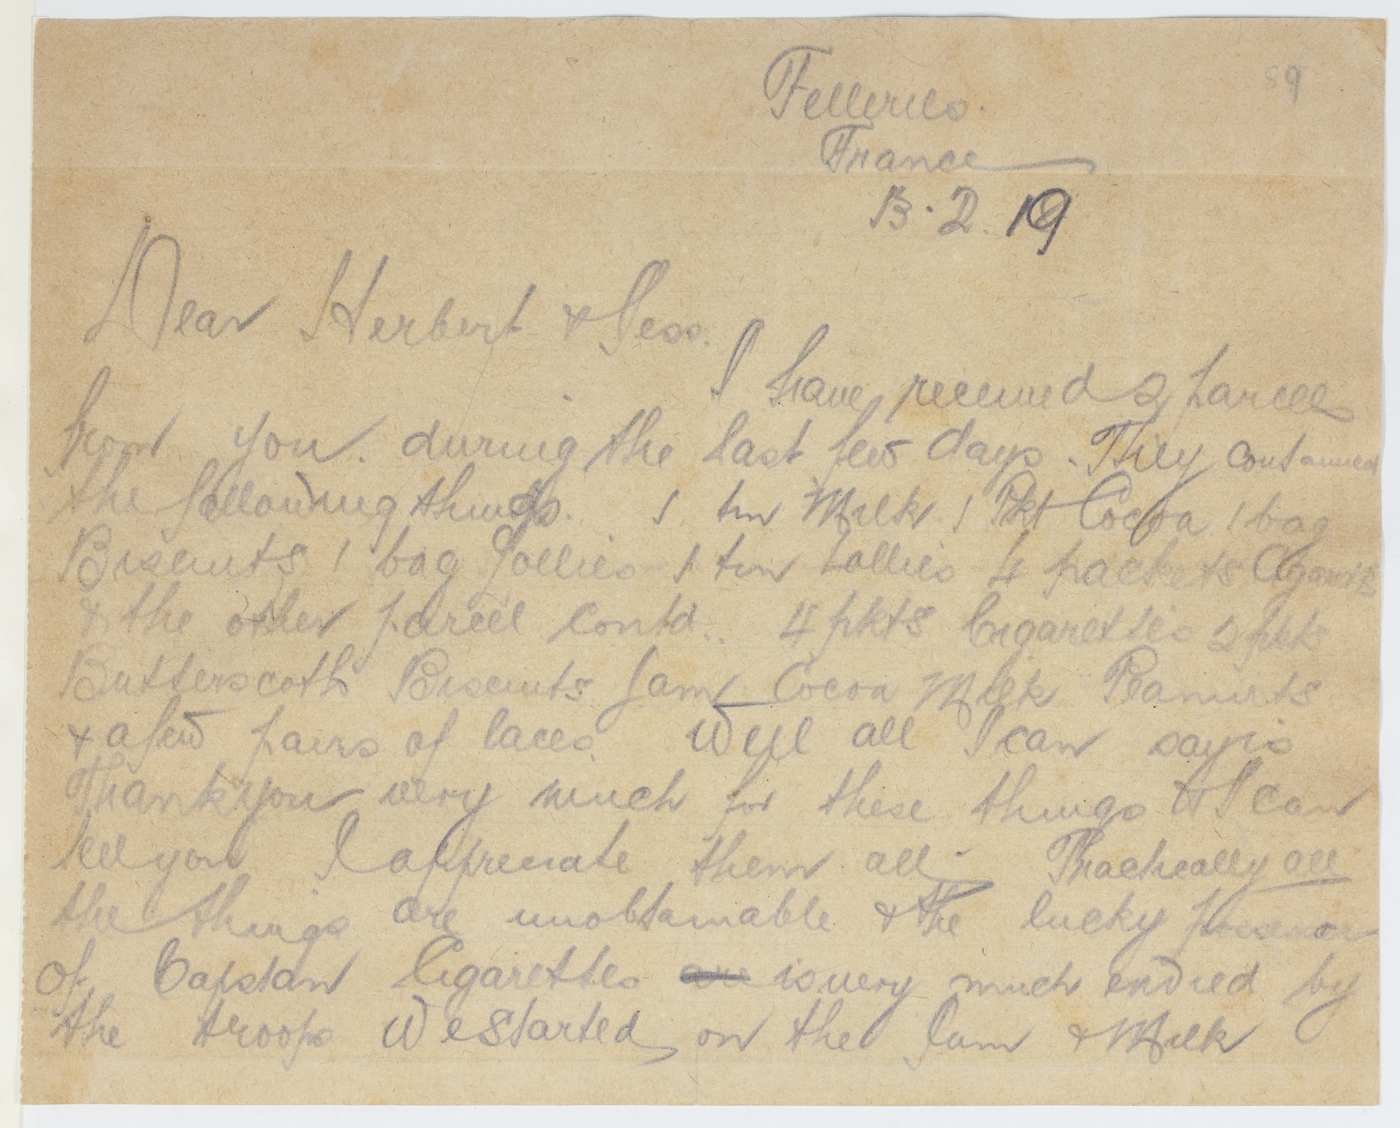 89
Felleries.
France
13.2.19
Dear Herbert & Jess.
I have received 2 parcels
from you. during the last few days. They contained
the following things. 1 tin Milk. 1 Pkt Cocoa 1 bag
Biscuits 1 bag Jollies 1 tin Lollies 4 packets Cigaretts
& the other parcel contd.. 4 pkts Cigarettes 2 pkts
Butterscoth Biscuits Jam Cocoa Milk Peanuts
& a few pairs of laces. Well all I can say is
Thank you very much for these things & I can
tell you I appreciate them all. Practically all
the things are unobtainable & the lucky possessor
of Capstan Cigarettes are is very much envied by
the troops We started on the Jam & Milk